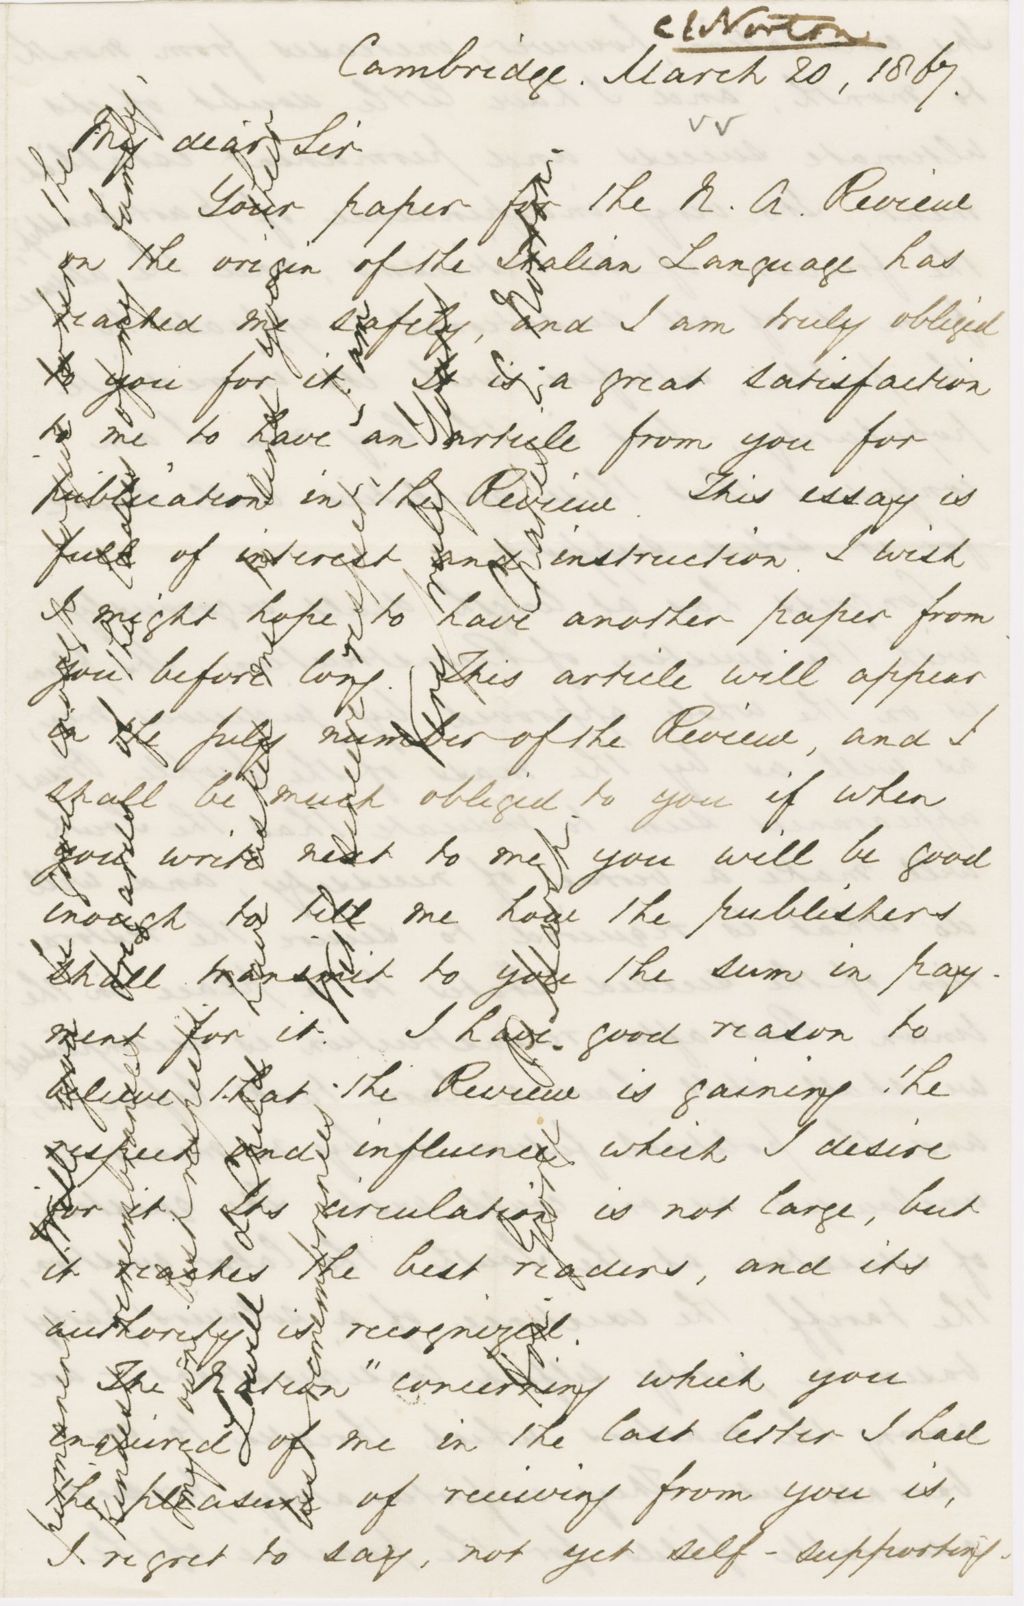 C E Norton
Cambridge. March 20, 1867.
My dear Sir
Your paper for the N. A. Review
on the origin of the Italian Language has
reached me safely, and I am truly obliged
to you for it. It is a great satisfaction
to me to have an article from you for
publication in the Review. This essay is
full of interest and instruction. I wish
I might hope to have another paper from
you before long. This article will appear
in the July number of the Review, and I
shall be much obliged to you if when
you write next to me, you will be good
enough to tell me how the publishers
shall transmit to you the sum in pay-
ment for it. I have good reason to
believe that the Review is gaining the
respect and influence which I desire
for it. Its circulation is not large, but
it reaches the best readers, and its
authority is recognized.
The "Nation" concerning which you
inquired of me in the last letter I had
the pleasure of receiving from you is,
I regret to say, not yet self-supporting.
permanent
kindest remembrances
my own best respects
I will
best remembrances
With sincere respect, I am
Very truly Yours
Charles E. Norton.
Hon. George P. Marsh.